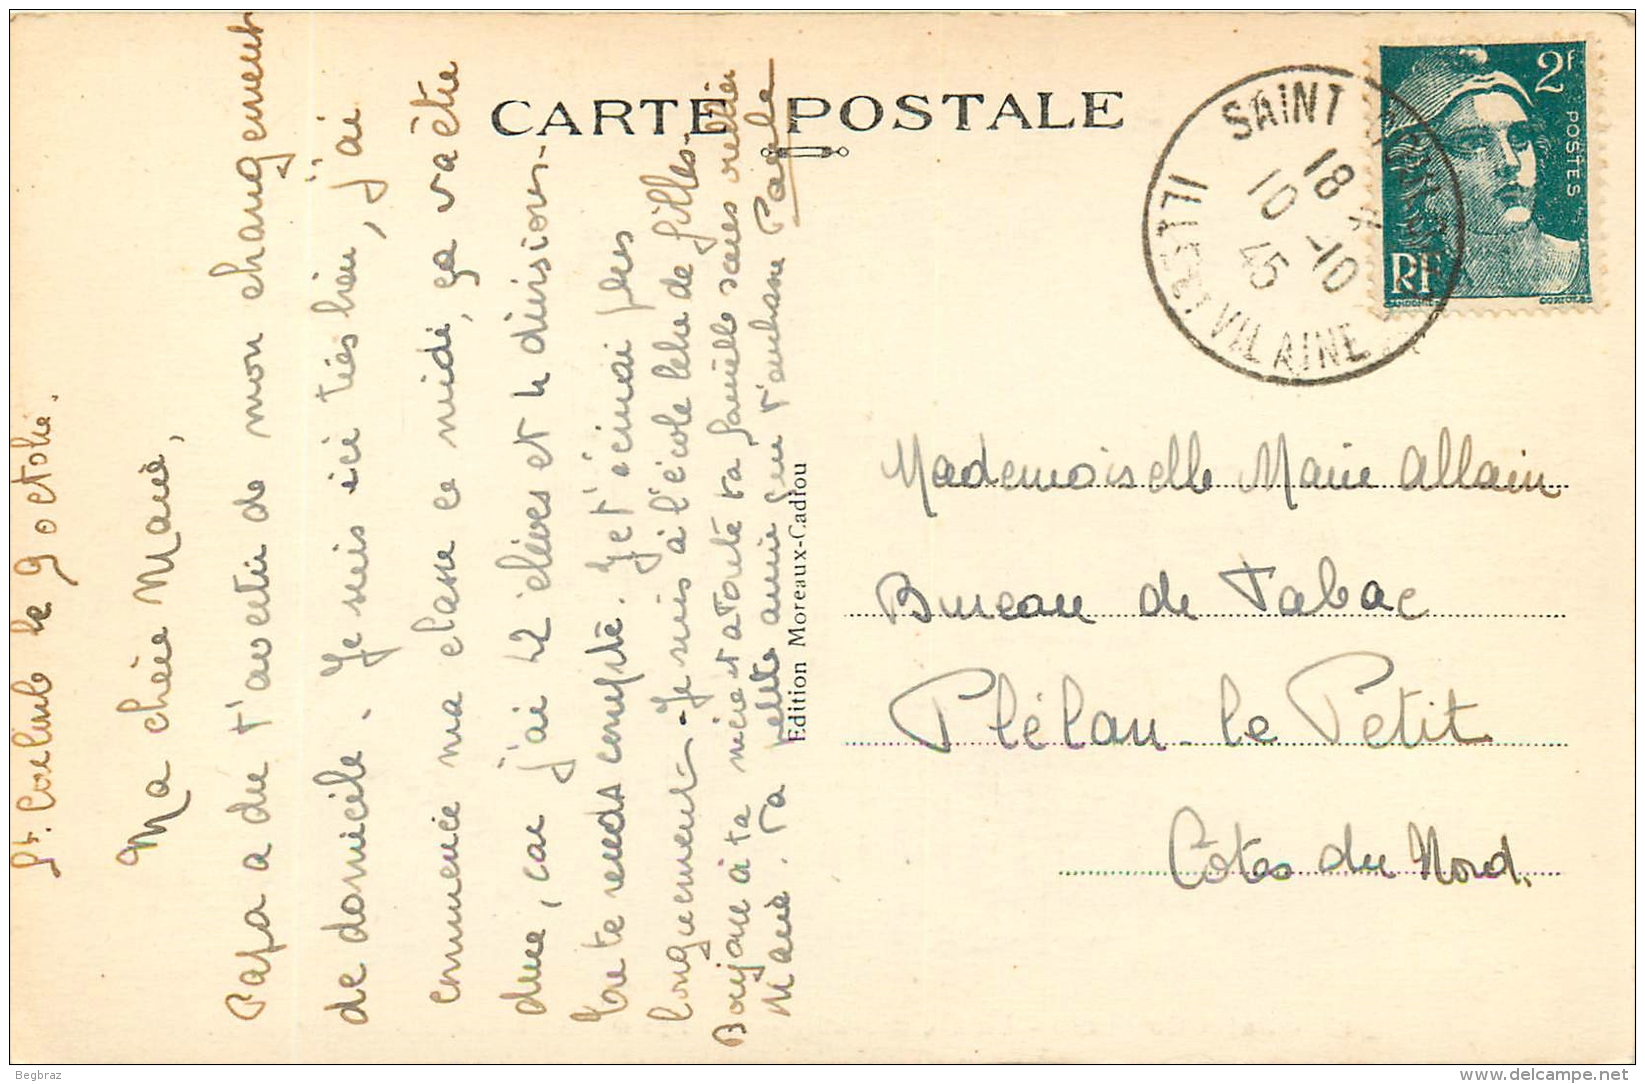 CARTE POSTALE
SAINT
18
10 -10
45
ILLE-ET-VILAINE
2F
POSTES
RF
GANDON
CORTOT.SC
St. Coulomb le 9 octobre.
Ma chère Marie,
Papa a du t'avertir de mon changement
de domicile. Je suis ici très bien, j'ai
commencé ma classe ce midi, ça va être
dur, car j'ai 42 élèves et 4 divisions.
tu te rends compte. Je t'écrirai plus
longuement. Je suis à l'école libre de filles.
Bonjour à ta mère et à toute ta famille sans oublier
Marie. Ta petite amie qui t'embrasse Paule
Edition Moreaux-Cadiou
Mademoiselle Marie Allain
Bureau de Tabac
Plélan-le-Petit
Côtes du Nord.
Begbraz
www.delcampe.net